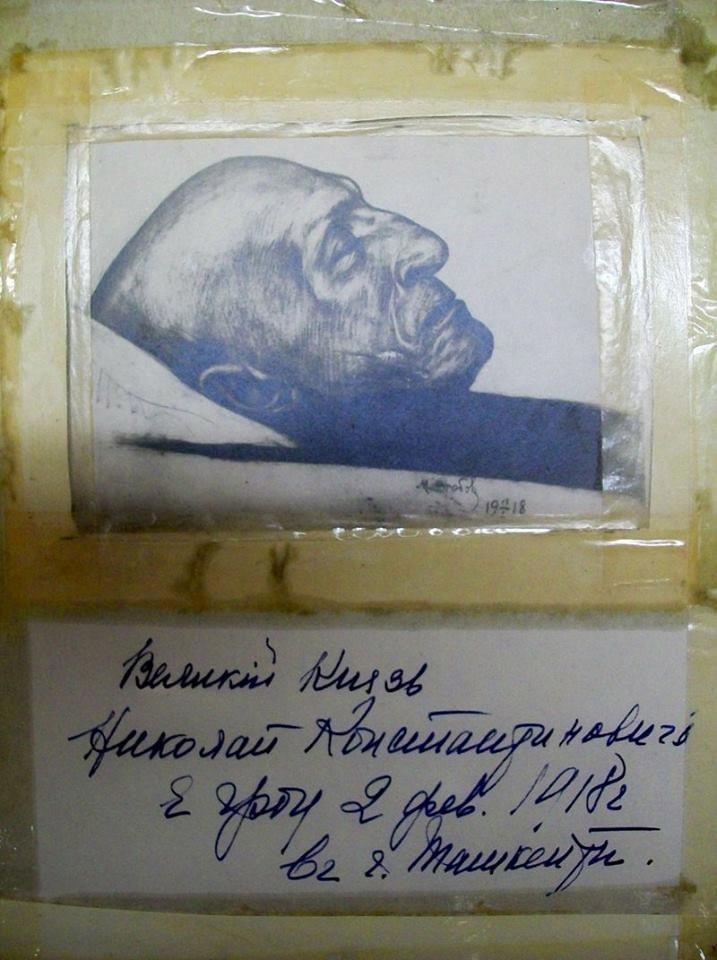 Великій Князь
Николай Константиновичъ
в гробу 2 фев. 1918г
въ г. Ташкентѣ.